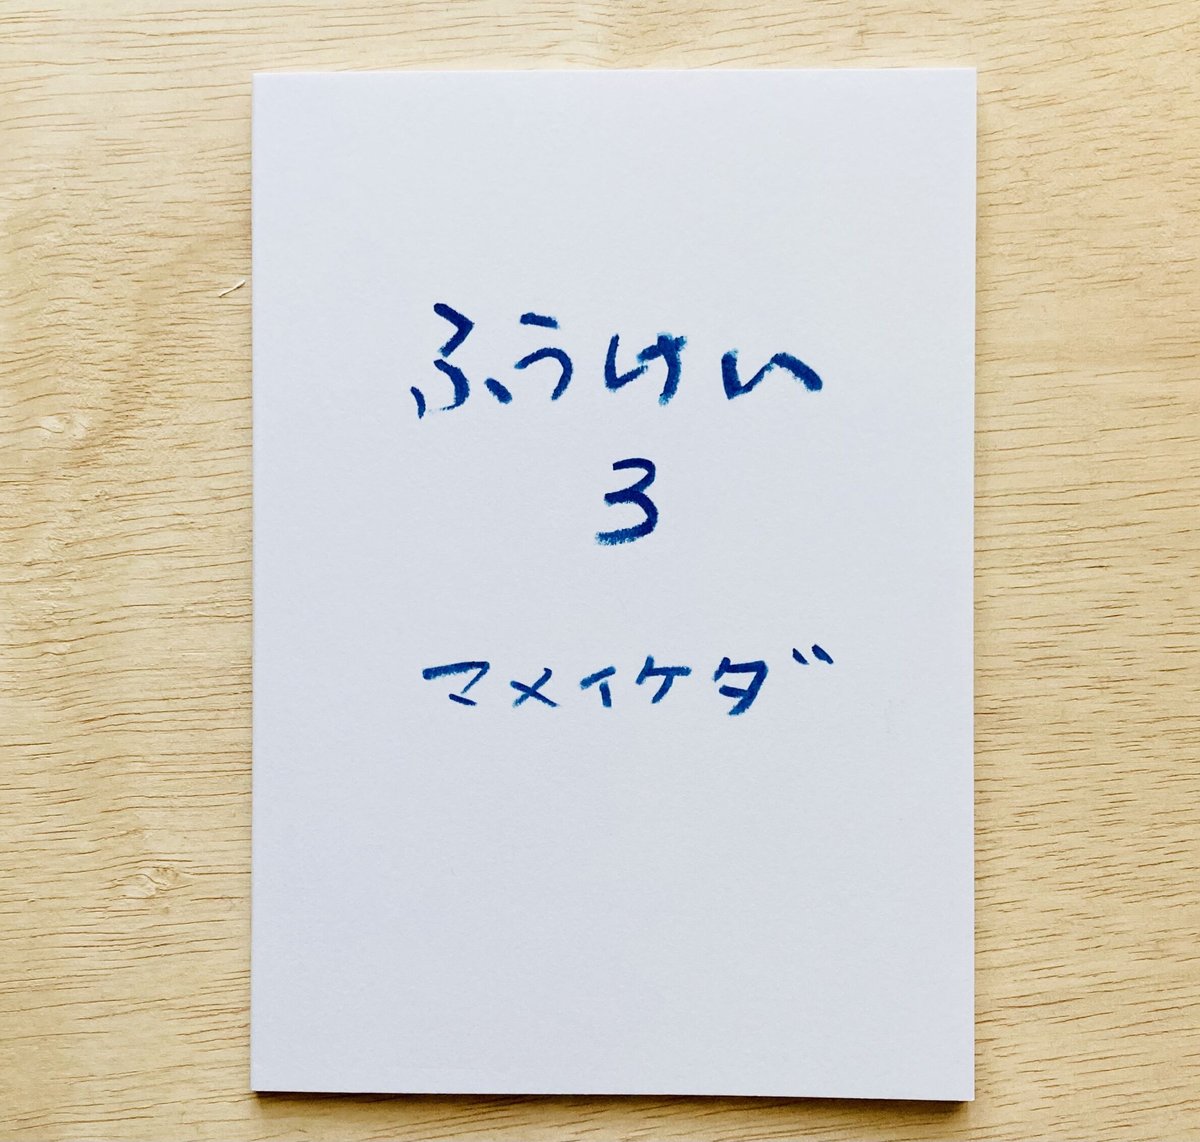 ふうけい
3
マメイケダ